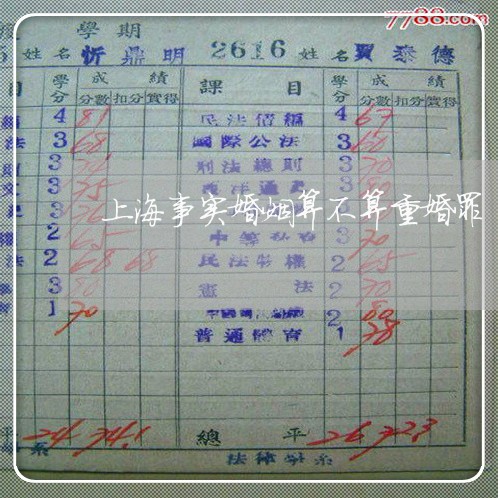 7788.com
學期
姓名 忻鼎明 2616 姓名 賈泰德
目 學分 成績 課目 學分 成績
分數 扣分 實得 分數 扣分 實得
4 81 民法債編 4 67
法 3 68 國際公法 3 60
3 刑法總則 3 70
3 75 西洋通史 3
3 3
上海事实婚姻算不算重婚罪
2 65 3 70
法 2 68 68 民法物權 2 65
3 80 憲法 2 70
1 70 2 80
普通體育 1 78
平 24 74.1 總平 26 72.3
系 法律學系